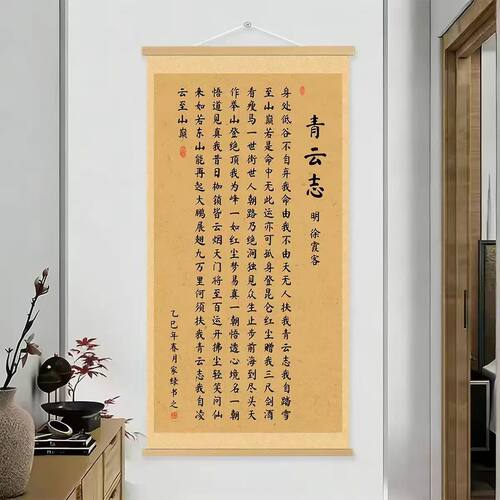 青云志
明 徐霞客
身处低谷不自弃我命由我不由天无人扶我青云志我自踏雪
至山巅若是命中无此运亦可孤身登昆仑红尘赠我三尺剑酒
肴瘦马一世街世人朝路乃绝涧独见众生止步前海到尽头天
作举山登绝顶我为峰一如红尘梦易真一朝悟透心境名一朝
悟道见真我昔日枷锁皆云烟天门将至百运开拂尘轻笑问仙
未如若东山能再起大鹏展翅九万里何须扶我青云志我自凌
云至山巅
乙巳年春月家绿书之